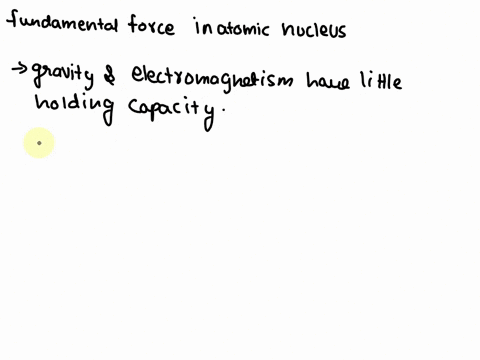 fundamental force in atomic nucleus
→ gravity & electromagnetism have little
holding capacity.